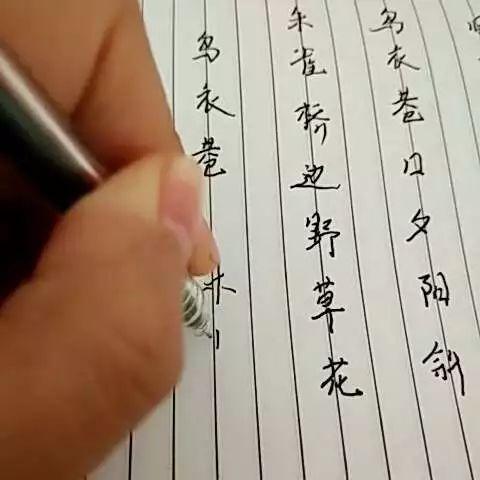 乌衣巷
朱雀桥边野草花
乌衣巷口夕阳斜